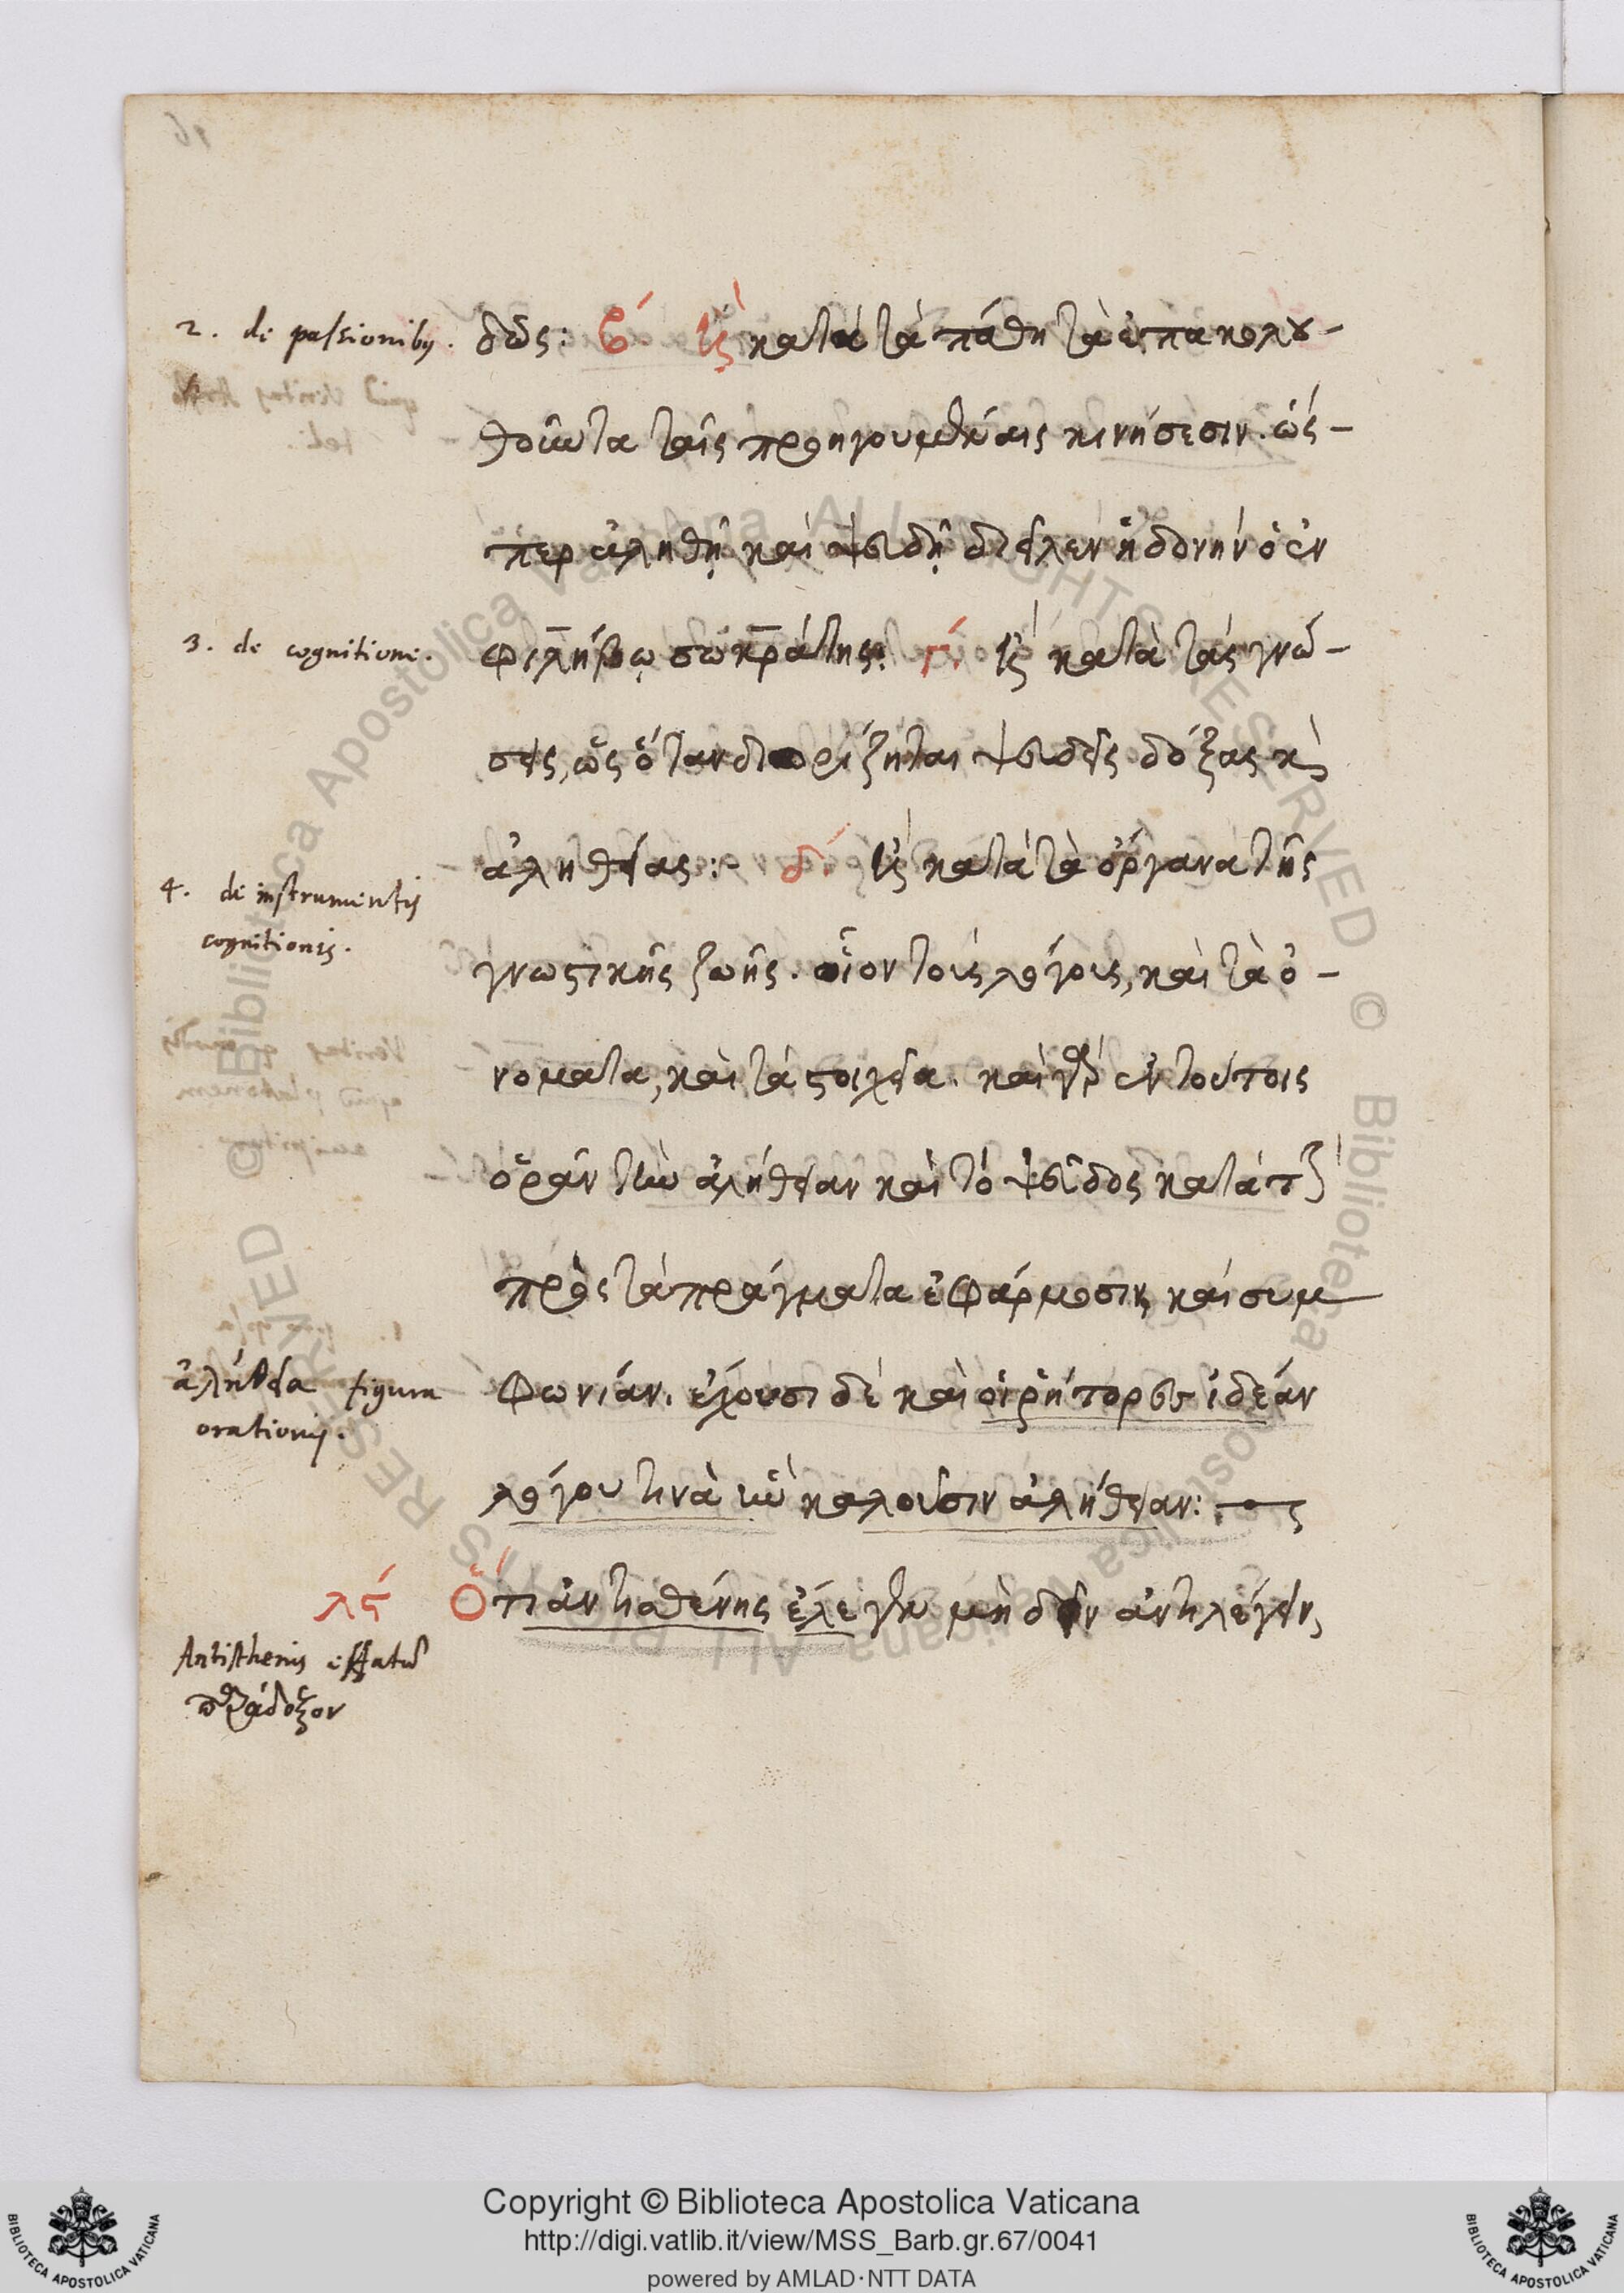 2. de passionibus.
δῶς: β΄ τῆς κατὰ τὰ πάθη τὰ ἐπακολου-
θοῦντα ταῖς προηγουμέναις κινήσεσιν. ὡς-
περ ἀληθῆ καὶ ψευδῆ διεῖλεν ἡδονὴν ὁ ἐν
3. de cognitione.
φιλήβῳ σωκράτης: γ΄ τῆς κατὰ τὰς γνώ-
σεις, ὡς ὅταν διορίζηται ψευδεῖς δόξας καὶ
ἀληθείας: δ΄ τῆς κατὰ τὰ ὄργανα τῆς
4. de instrumentis
cognitionis.
γνωστικῆς ζωῆς. οἷον τοὺς λόγους, καὶ τὰ ὀ-
νοματα, καὶ τὰ στοιχεῖα. καὶ γὰρ ἐν τούτοις
ὁρᾶν τὴν ἀλήθειαν καὶ τὸ ψεῦδος κατὰ τὴν
πρὸς τὰ πράγματα ἐφάρμοσιν, καὶ συμ
ἀλήθεια figura
orationis.
φωνίαν. ἔχουσι δὲ καὶ οἱ ῥήτορες ἰδέαν
λόγου τινὰ ἣν καλοῦσιν ἀλήθειαν:
λς΄ Ὅτι ἀντισθένης ἔλεγεν μὴ δεῖν ἀντιλέγειν,
Antisthenis effatum
παράδοξον
Copyright © Biblioteca Apostolica Vaticana
http://digi.vatlib.it/view/MSS_Barb.gr.67/0041
powered by AMLAD·NTT DATA